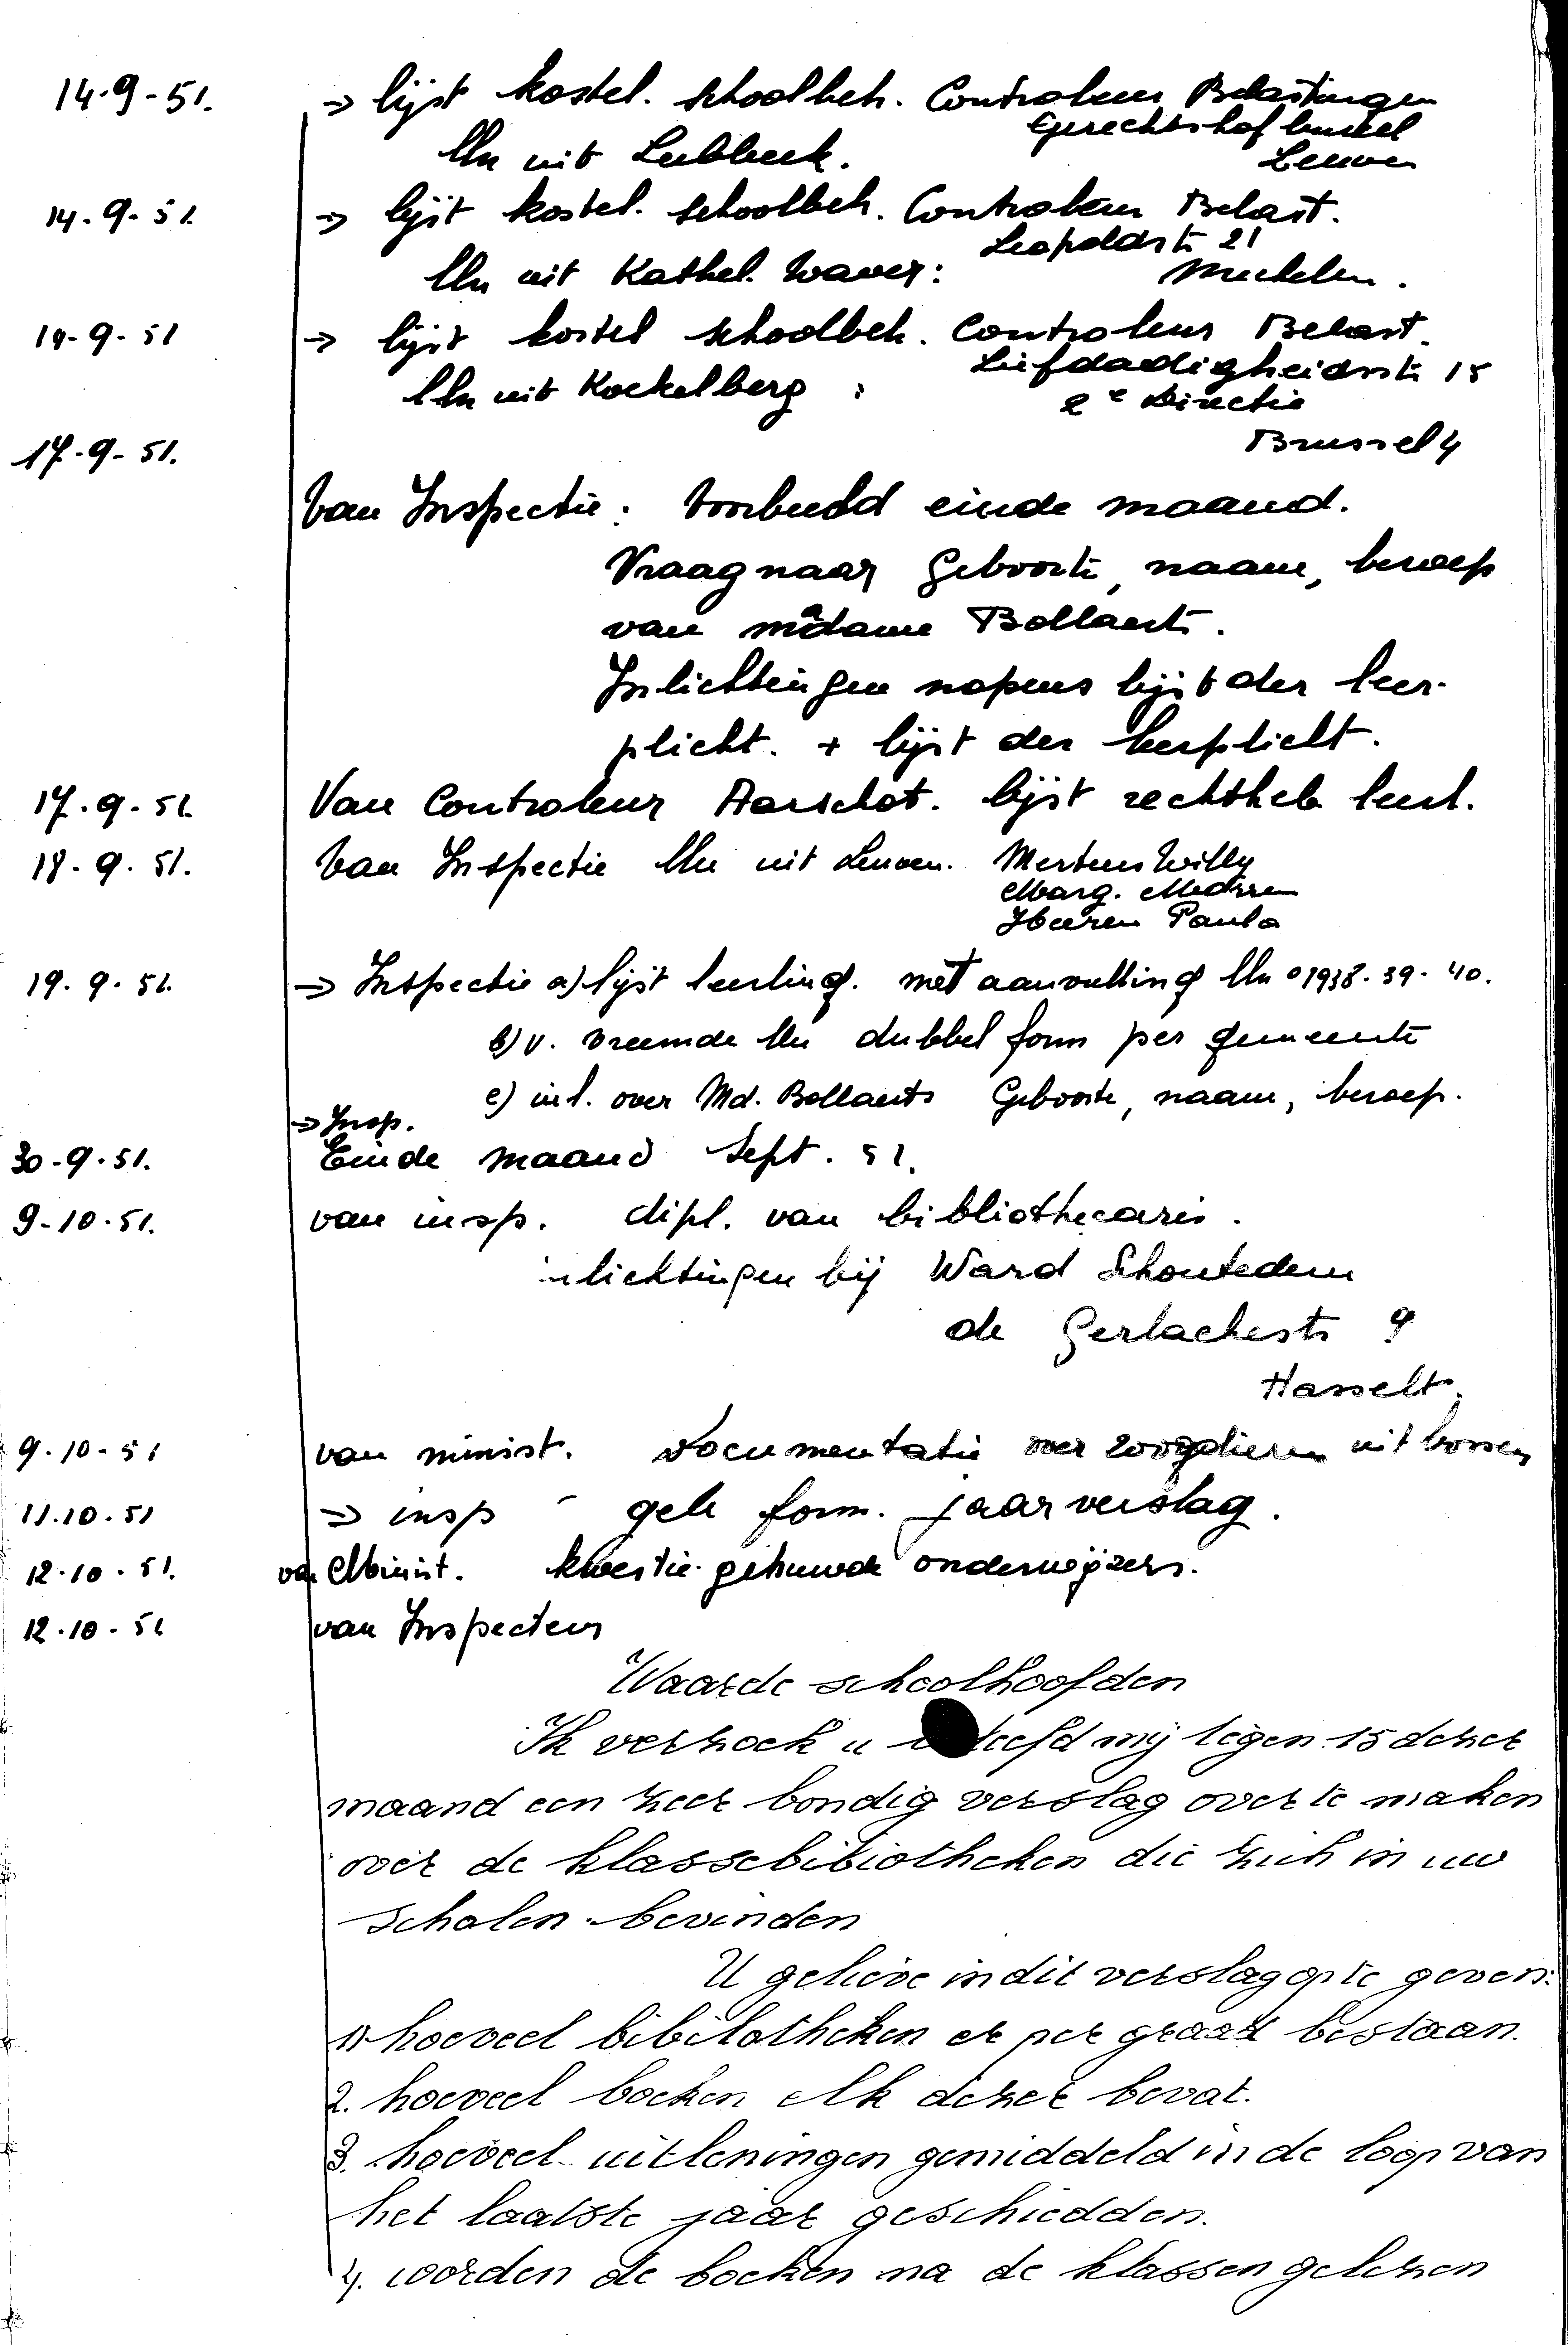 14-9-51. → lijst kostel. schoolbeh. Controleur Belastingen
Gerechtshof
lln uit Lubbeek. Leuven
14-9-51. → lijst kostel. schoolbeh. Controleur Belast.
Leopoldstr 21
lln uit Kathel. Waver: Mechelen.
14-9-51 → lijst kostel schoolbeh. Controleur Belast.
Liefdadigheidsstr 15
lln uit Koekelberg : 2e Directie
Brussel 4
17-9-51.
Van Inspectie: Voorbeeld einde maand.
Vraag naar Geboorte, naam, beroep
van madame Bollaerts.
Inlichtingen nopens lijst der leer-
plicht. + lijst der leerplicht.
17.9.51. Van Controleur Aarschot. lijst rechtheb leerl.
18.9.51. Van Inspectie lln uit Leuven. Mertens Willy
Marg.
Heeren Paula
19.9.51. → Inspectie a) lijst leerling. met aanvulling lln ° 1938-39-40.
b) v. vreemde lln dubbel form per gemeente
c) inl. over Md. Bollaerts Geboorte, naam, beroep.
→ Insp.
30-9-51. Einde maand Sept. 51.
9-10-51. van insp. dipl. van bibliothecaris.
inlichtingen bij Ward Schouteden
de Gerlachestr 9
Hasselt.
9.10-51 van minist. documentatie over zoogdieren uit bossen
11.10.51 → insp - gele form. jaarverslag.
12.10.51. van Minist. kwestie gehuwde onderwijzers.
12.10.51 van Inspecteur
Waarde schoolhoofden
Ik verzoek u beleefd mij tegen 15 dezer
maand een zeer bondig verslag over te maken
over de klassebibiotheken die zich in uw
scholen bevinden
U gelieve in dit verslag op te geven:
1) hoeveel bibilotheken er per graad bestaan.
2. hoeveel boeken elk dezer bevat.
3. hoeveel uitleningen gemiddeld in de loop van
het laatste jaar geschiedden.
4. worden de boeken na de klassen gelezen